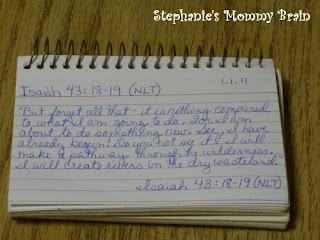 Stephanie's Mommy Brain
1.1.11
Isaiah 43:18-19 (NLT)
"But forget all that - it is nothing compared
to what I am going to do. For I am
about to do something new. See, I have
already begun! Do you not see it? I will
make a pathway through the wilderness.
I will create rivers in the dry wasteland."
~Isaiah 43:18-19 (NLT)